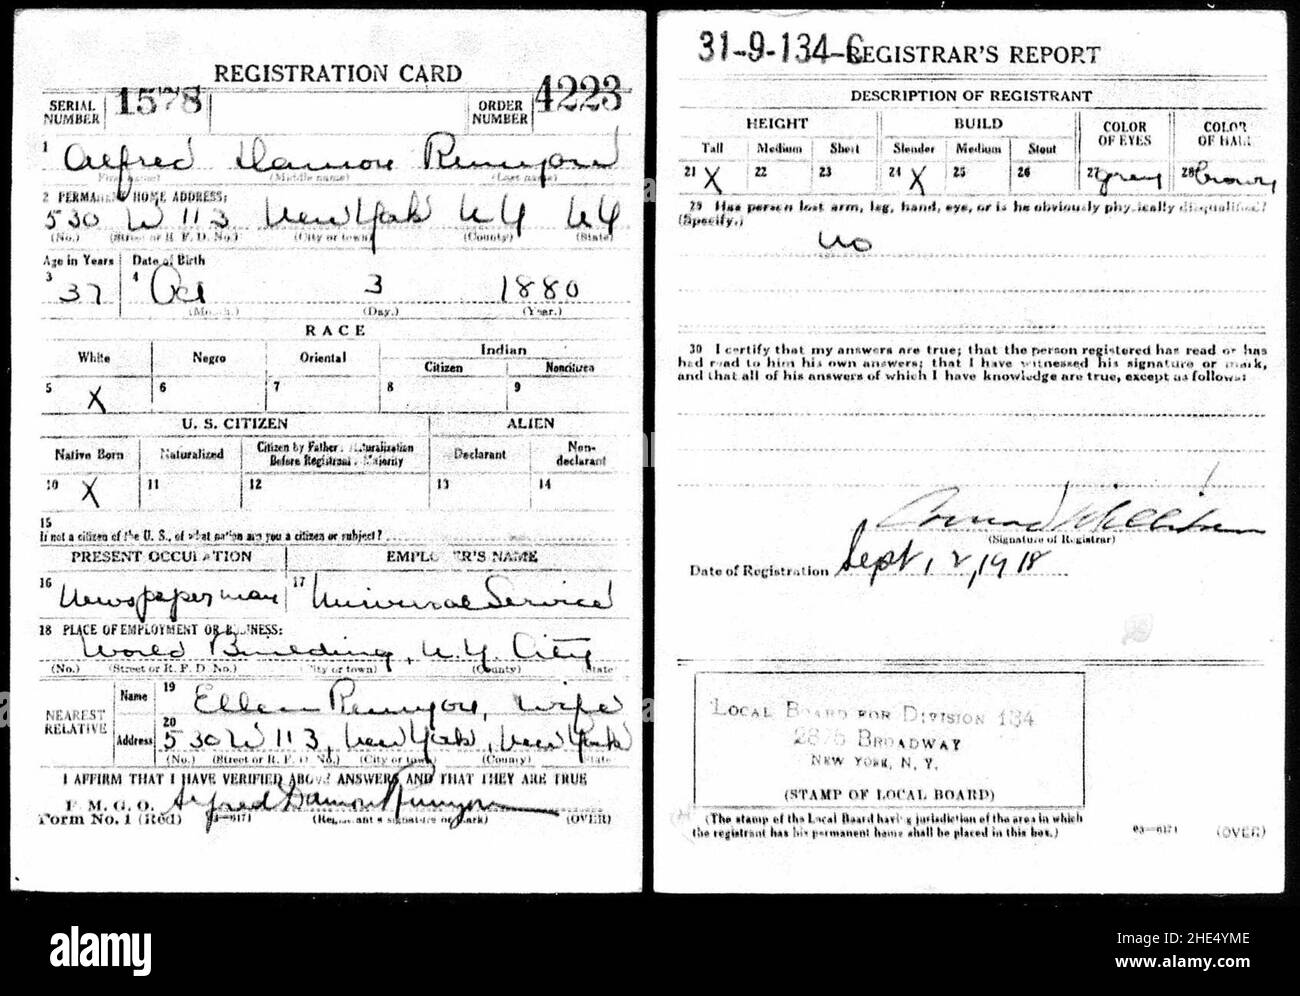 REGISTRATION CARD
SERIAL NUMBER 1578
ORDER NUMBER 4223
1 Alfred Damon Runyon
(First name) (Middle name) (Last name)
2 PERMANENT HOME ADDRESS:
530 W 113 New York N Y N Y
(No.) (Street or R. F. D. No.) (City or town) (County) (State)
Age in Years Date of Birth
3 37 4 Oct 3 1880
(Month.) (Day.) (Year.)
RACE
White Negro Oriental Indian
Citizen Noncitizen
5 X 6 7 8 9
U. S. CITIZEN ALIEN
Native Born Naturalized Citizen by Father's Naturalization Before Registrant's Majority Declarant Non-declarant
10 X 11 12 13 14
15
If not a citizen of the U. S., of what nation are you a citizen or subject?
PRESENT OCCUPATION EMPLOYER'S NAME
16 Newspaperman 17 Universal Service
18 PLACE OF EMPLOYMENT OR BUSINESS:
World Building, N.Y. City
(No.) (Street or R. F. D. No.) (City or town) (County) State
NEAREST RELATIVE
Name 19 Ellen Runyon, wife
Address 20 530 W 113, New York, New York
(No.) (Street or R. F. D. No.) (City or town) (County) State
I AFFIRM THAT I HAVE VERIFIED ABOVE ANSWERS AND THAT THEY ARE TRUE
P. M. G. O.
Form No. 1 (Red) 03—6171 Alfred Damon Runyon
(Registrant's signature or mark) (OVER)
31-9-134-C REGISTRAR'S REPORT
DESCRIPTION OF REGISTRANT
HEIGHT BUILD COLOR OF EYES COLOR OF HAIR
Tall Medium Short Slender Medium Stout
21 X 22 23 24 X 25 26 27 gray 28 brown
29 Has person lost arm, leg, hand, eye, or is he obviously physically disqualified?
(Specify.)
no
30 I certify that my answers are true; that the person registered has read or has
had read to him his own answers; that I have witnessed his signature or mark,
and that all of his answers of which I have knowledge are true, except as follows:
(Signature of Registrar)
Date of Registration Sept. 12, 1918
LOCAL BOARD FOR DIVISION 134
2875 BROADWAY
NEW YORK, N. Y.
(STAMP OF LOCAL BOARD)
(The stamp of the Local Board having jurisdiction of the area in which
the registrant has his permanent home shall be placed in this box.)
03—6171 (OVER)
alamy
Image ID: 2HE4YME
www.alamy.com